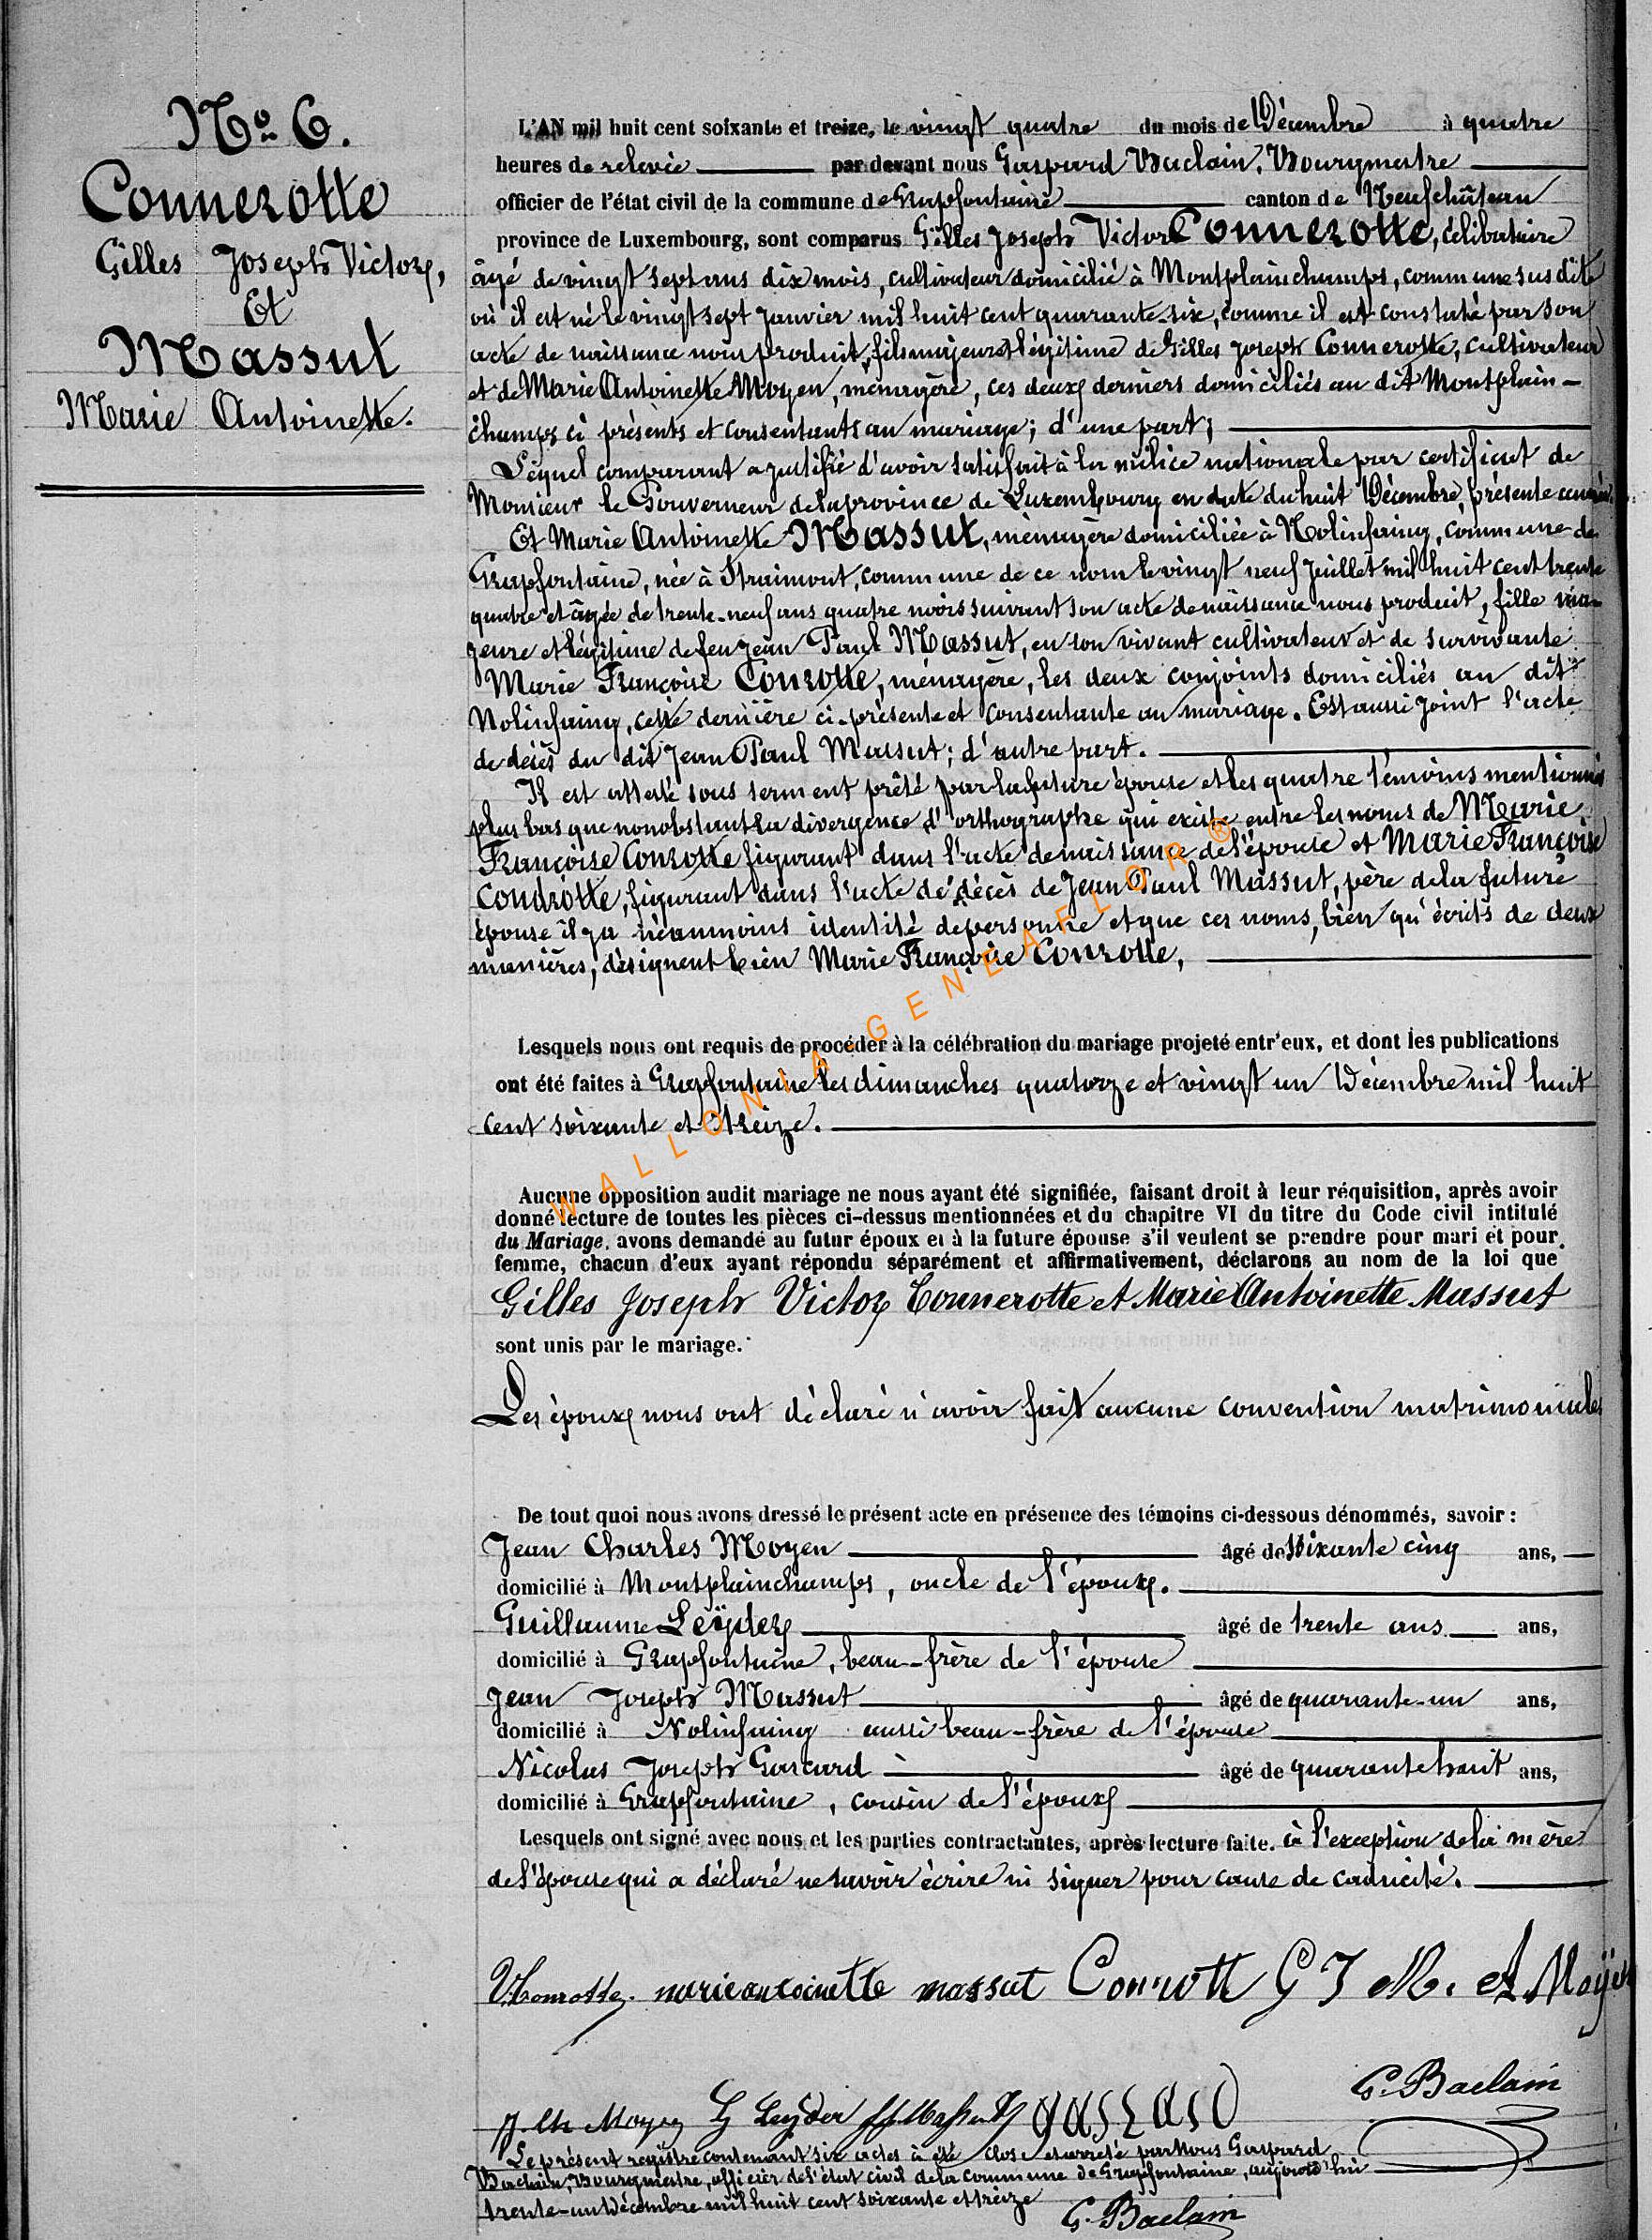 No 6.
Connerotte
Gilles Joseph Victor,
Et
Massut
Marie Antoinette.
L'AN mil huit cent soixante et treize, le vingt quatre du mois de Décembre à quatre
heures de relevée par devant nous Gaspard Baclain, Bourgmestre
officier de l'état civil de la commune de Grapfontaine canton de Neufchâteau
province de Luxembourg, sont comparus Gilles Joseph Victor Connerotte, célibataire
âgé de vingt sept ans dix mois, cultivateur domicilié à Montplainchamps, commune sus dite
où il est né le vingt sept Janvier mil huit cent quarante-six, comme il est constaté par son
acte de naissance nous produit, fils majeur et légitime de Gilles Joseph Connerotte, cultivateur
et de Marie Antoinette Moyen, ménagère, ces deux derniers domiciliés au dit Montplain-
champs ci présents et consentants au mariage; d'une part;
Lequel comparant a justifié d'avoir satisfait à la milice nationale par certificat de
Monsieur le Gouverneur de la province de Luxembourg en date du huit Décembre, présente année.
Et Marie Antoinette Massut, ménagère domiciliée à Nolinfaing, commune de
Grapfontaine, née à Straimont, commune de ce nom le vingt neuf Juillet mil huit cent trente
quatre et âgée de trente-neuf ans quatre mois suivant son acte de naissance nous produit, fille ma-
jeure et légitime de feu Jean Paul Massut, en son vivant cultivateur et de survivante
Marie Françoise Conrotte, ménagère, les deux conjoints domiciliés au dit
Nolinfaing, cette dernière ci-présente et consentante au mariage. Est aussi joint l'acte
de décès du dit Jean Paul Massut; d'autre part.
Il est attesté sous serment prêté par la future épouse et les quatre témoins mentionnés
plus bas que nonobstant la divergence d'orthographe qui existe entre les noms de Marie
Françoise Conrotte figurant dans l'acte de naissance de l'épouse et Marie Françoise
Condrotte, figurant dans l'acte de décès de Jean Paul Massut, père de la future
épouse il y a néanmoins identité de personne et que ces noms, bien qu'écrits de deux
manières, désignent bien Marie Françoise Conrotte,
Lesquels nous ont requis de procéder à la célébration du mariage projeté entr'eux, et dont les publications
ont été faites à Grapfontaine les dimanches quatorze et vingt un Décembre mil huit
cent soixante et treize.
WALLONIA-GENEAFLOR®
Aucune opposition audit mariage ne nous ayant été signifiée, faisant droit à leur réquisition, après avoir
donné lecture de toutes les pièces ci-dessus mentionnées et du chapitre VI du titre du Code civil intitulé
du Mariage, avons demandé au futur époux et à la future épouse s'il veulent se prendre pour mari et pour
femme, chacun d'eux ayant répondu séparément et affirmativement, déclarons au nom de la loi que
Gilles Joseph Victor Connerotte et Marie Antoinette Massut
sont unis par le mariage.
Les époux nous ont déclaré n'avoir fait aucune convention matrimoniale
De tout quoi nous avons dressé le présent acte en présence des témoins ci-dessous dénommés, savoir :
Jean Charles Moyen âgé de soixante cinq ans,
domicilié à Montplainchamps, oncle de l'époux.
Guillaume Leÿder âgé de trente ans ans,
domicilié à Grapfontaine, beau-frère de l'épouse
Jean Joseph Massut âgé de quarante-un ans,
domicilié à Nolinfaing aussi beau-frère de l'épouse
Nicolas Joseph Gascard âgé de quarante huit ans,
domicilié à Grapfontaine, cousin de l'époux
Lesquels ont signé avec nous et les parties contractantes, après lecture faite. à l'exception de la mère
de l'épouse qui a déclaré ne savoir écrire ni signer pour cause de caducité.
V. Conrotte. marie antoinette massut Conrotte G J M. A. Moÿen
G. Baclain
J. Ch Moyen G Leÿder J J Massut gascard
Le présent registre contenant six actes à été clos et arrêté par Nous Gaspard
Baclain, Bourgmestre, officier de l'état civil de la commune de Grapfontaine, aujourd'hui
trente-un Décembre mil huit cent soixante et treize
G. Baclain